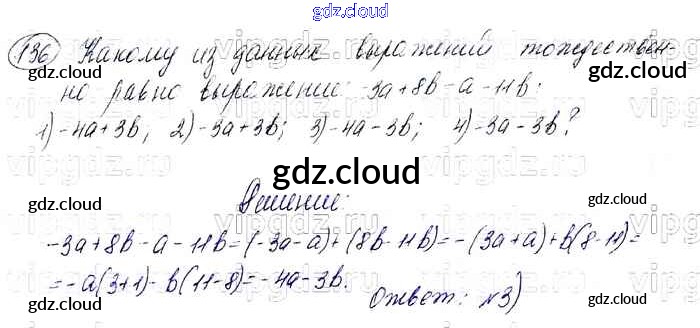 gdz.cloud
136) Какому из данных выражений тождествен-
но равно выражение: -3a+8b-a-11b:
1) -4a+3b; 2) -3a+3b; 3) -4a-3b; 4) -3a-3b?
gdz.cloud
Решение:
-3a+8b-a-11b=(-3a-a)+(8b-11b)=-(3a+a)+b(8-11)=
=-a(3+1)-b(11-8)=-4a-3b.
Ответ: №3)
gdz.cloud